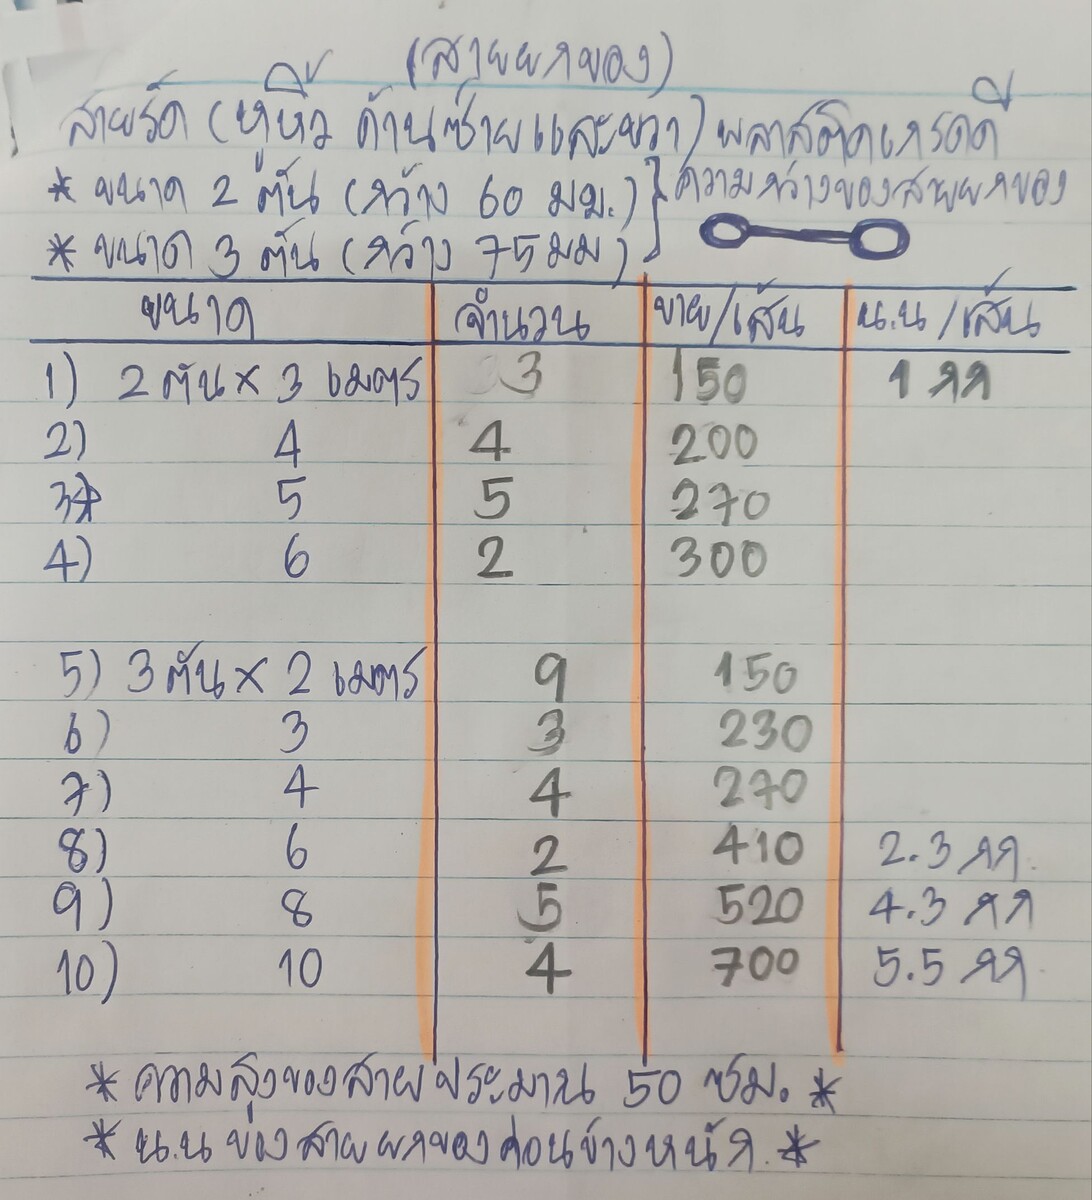 (สายยกของ)
สายรัด (หูหิ้ว ด้านซ้ายและขวา) พลาสติคเกรดดี
* ขนาด 2 ตัน (กว้าง 60 มม.) } ความกว้างของสายยกของ
* ขนาด 3 ตัน (กว้าง 75 มม)
ขนาด จำนวน ขาย/เส้น น.น/เส้น
1) 2 ตัน x 3 เมตร 3 150 1 กก
2) 4 4 200
3) 5 5 270
4) 6 2 300
5) 3 ตัน x 2 เมตร 9 150
6) 3 3 230
7) 4 4 270
8) 6 2 410 2.3 กก.
9) 8 5 520 4.3 กก
10) 10 4 700 5.5 กก.
* ความสูงของสายประมาน 50 ซม. *
* น.น ของสายยกของค่อนข้างหนัก. *